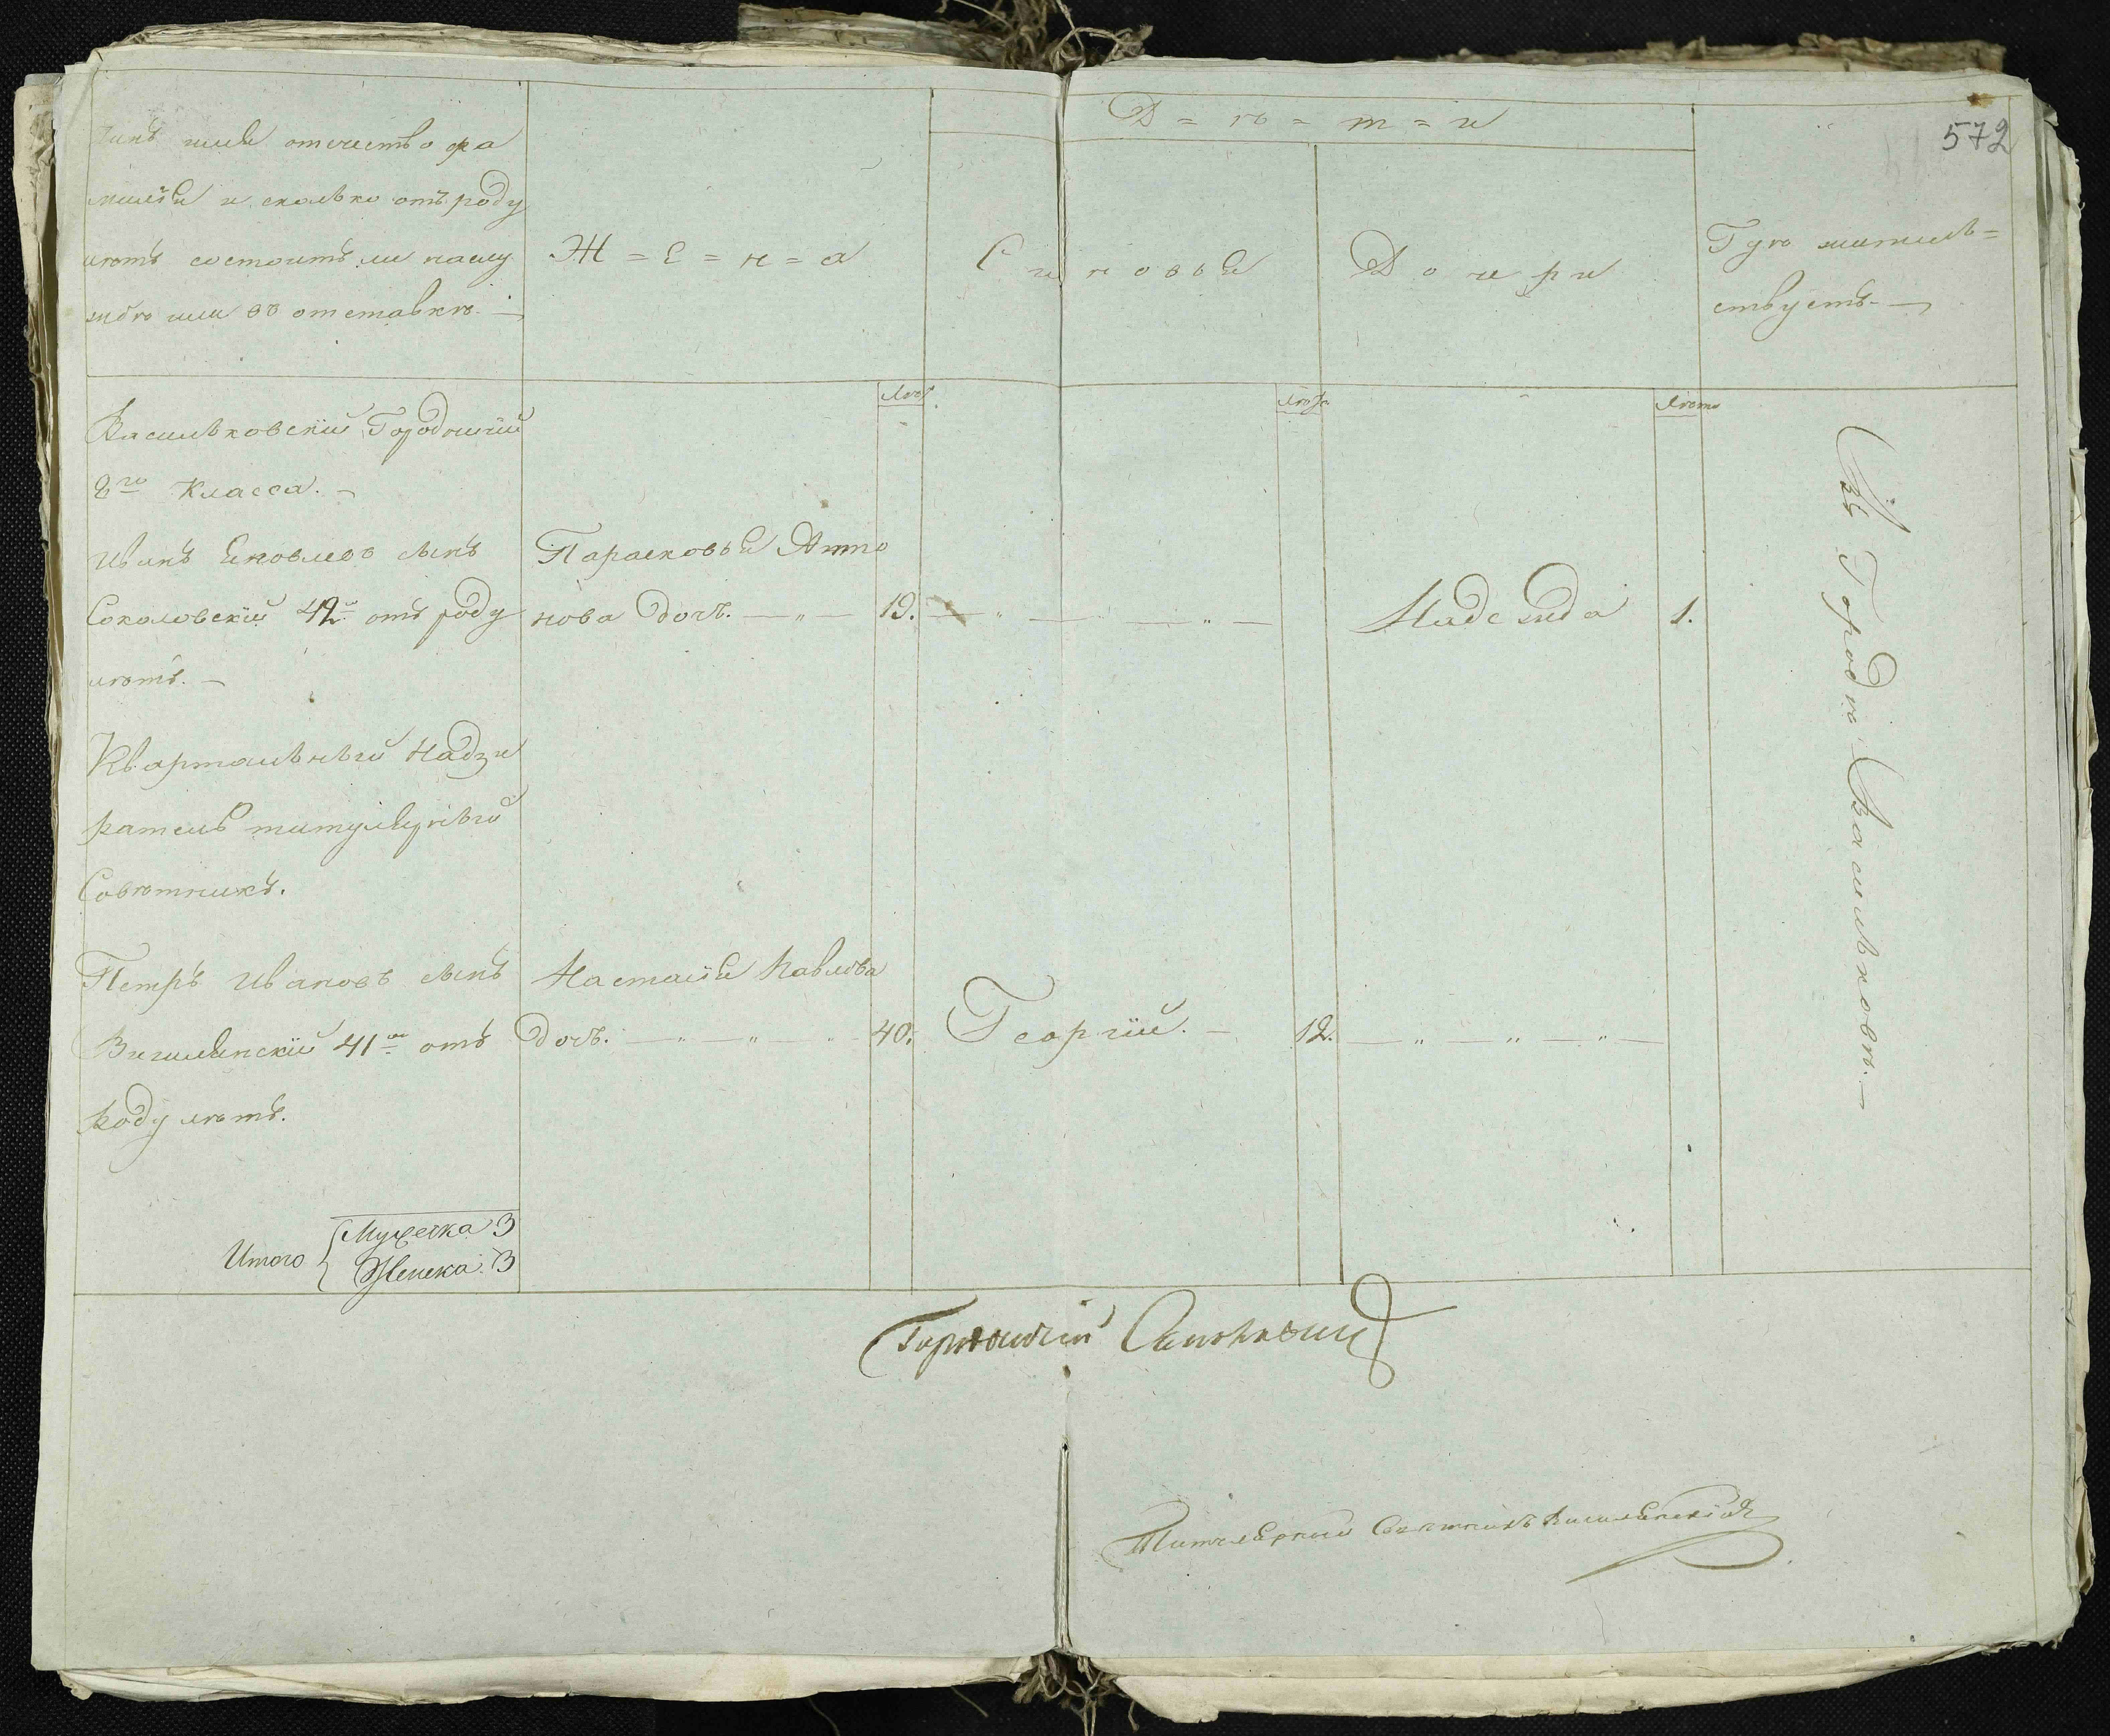 572
Чинъ имя отечество фа
милія и сколько отъ роду
лѣтъ состоитъ ли на слу
жбѣ или въ отставкѣ. —
Ж = е = н = а
Д = ѣ = т = и
Синовья
Дочери
Гдѣ житель=
ствуетъ. —
Лѣтъ
Лѣта
Лѣта
Васильковскій Городничій
8го Класса. —
Иванъ Яковлевъ сынъ
Соколовскій 42 отъ роду
лѣтъ. —
Парасковья Анто
нова дочь. — „ — 19.
— „ — — „ —
Надежда 1.
Въ Городѣ Василькове. —
Квартальный Надзи
ратель титулярный
Советникъ.
Петръ Ивановъ сынъ
Вигилянскій 41 отъ
роду лѣтъ.
Настасія Павлова
дочь. — „ — „ — 40.
Георгій. — 12.
— „ — „ — „ —
Итого
Мужеска 3
Женска. 3
Городничій Соколовскій
Титулярный Советникъ Вигилянскій